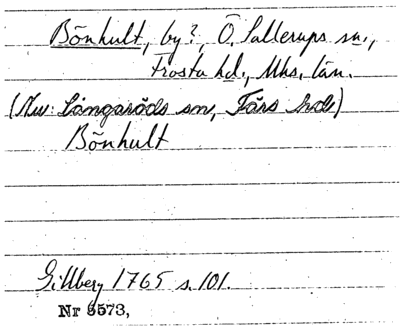 Bönhult, by?, Ö. Sallerups sn.,
Frosta hd., Mhs. län.
(Nu: Långaröds sn, Färs hde)
Bönhult
Gillberg 1765 s. 101.
Nr 5573,